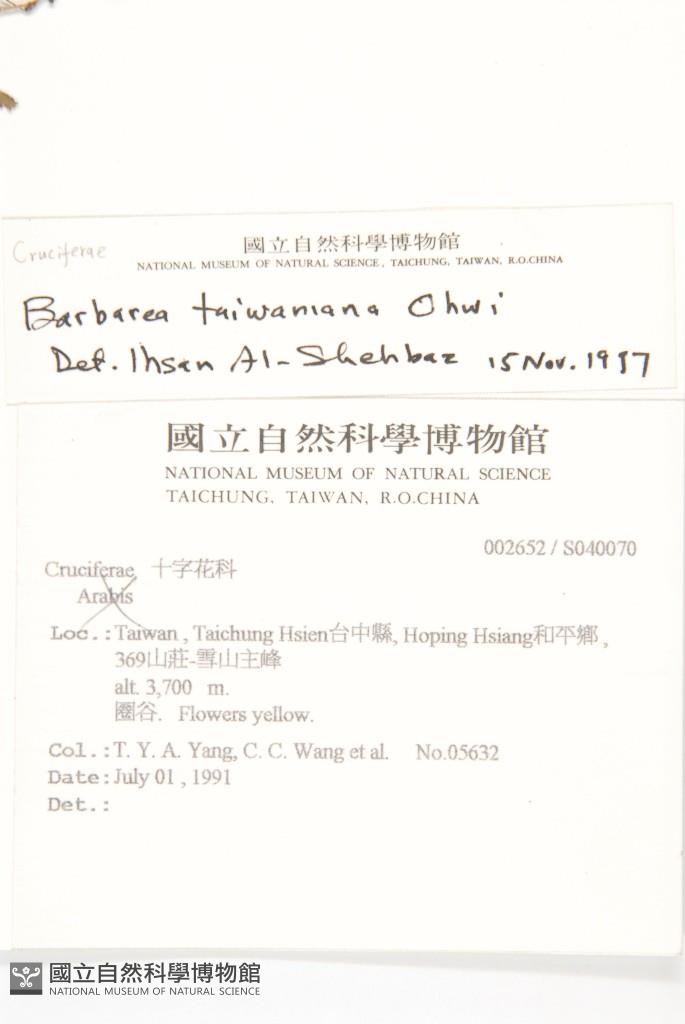 Cruciferae
國立自然科學博物館
NATIONAL MUSEUM OF NATURAL SCIENCE, TAICHUNG, TAIWAN, R.O.CHINA
Barbarea taiwaniana Ohwi
Det. Ihsan Al-Shehbaz 15 Nov. 1997
國立自然科學博物館
NATIONAL MUSEUM OF NATURAL SCIENCE
TAICHUNG, TAIWAN, R.O.CHINA
002652 / S040070
Cruciferae 十字花科
Arabis
Loc.:Taiwan , Taichung Hsien台中縣, Hoping Hsiang和平鄉 ,
369山莊-雪山主峰
alt. 3,700 m.
圈谷. Flowers yellow.
Col.:T. Y. A. Yang, C. C. Wang et al. No.05632
Date:July 01 , 1991
Det.:
國立自然科學博物館
NATIONAL MUSEUM OF NATURAL SCIENCE